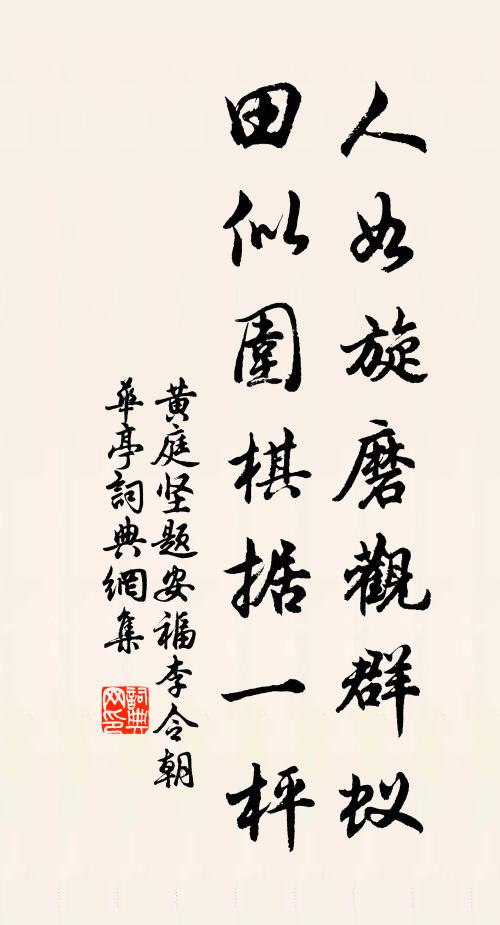 人如旋磨觀群蚁
田似圍棋据一枰
黄庭坚题安福李令朝
華亭詞典網集
詞典网印